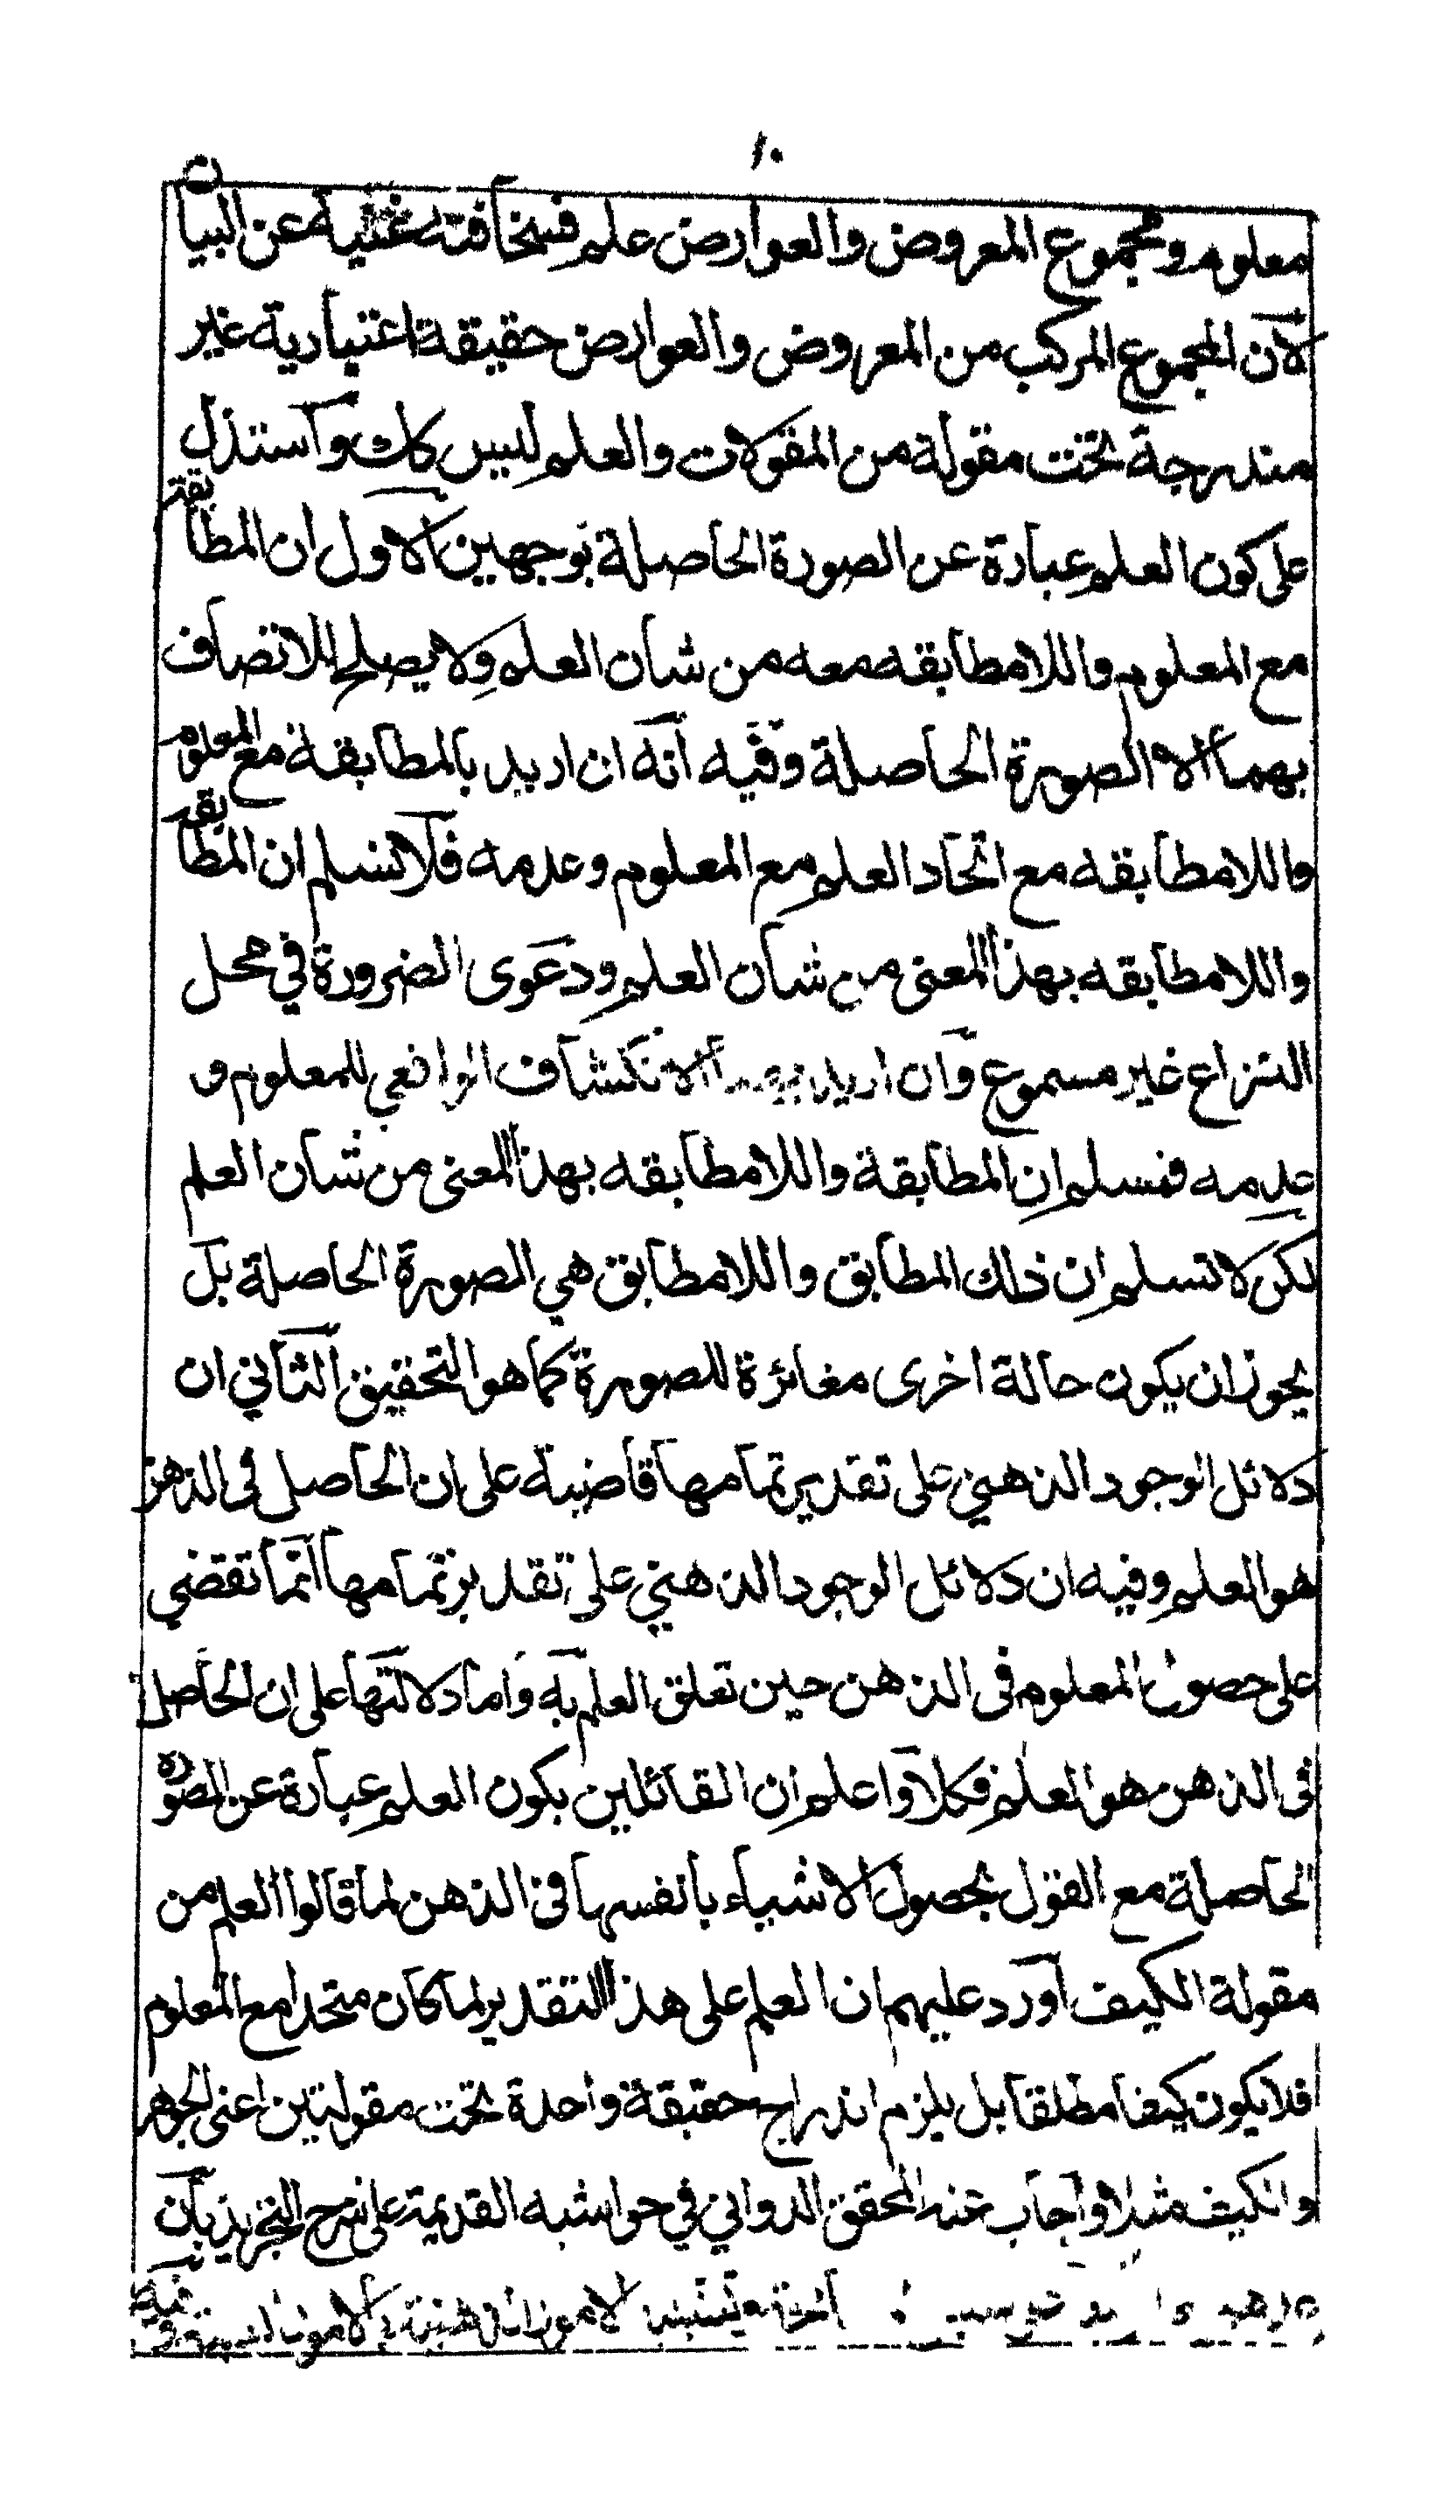 ١٠
معلوم ومجموع المعروض والعوارض علم فسخافته غنية عن البيان
لان المجموع المركب من المعروض والعوارض حقيقة اعتبارية غير
مندرجة تحت مقولة من المقولات والعلم ليس كك واستدل
على كون العلم عبارة عن الصورة الحاصلة بوجهين الاول ان المطابقة
مع المعلوم واللامطابقه معه من شان العلم ولا يصلح للاتصاف
بهما الا الصورة الحاصلة وفيه انه ان اريد بالمطابقة مع المعلوم
واللامطابقه مع اتحاد العلم مع المعلوم وعدمه فلا نسلم ان المطابقة
واللامطابقه بهذا المعنى من شان العلم ودعوى الضرورة في محل
النزاع غير مسموع وان اريد الانكشاف الواقعي للمعلوم و
عدمه فنسلم ان المطابقة واللامطابقه بهذا المعنى من شان العلم
لكن لا نسلم ان ذلك المطابق واللامطابق هي الصورة الحاصلة بل
يجوز ان يكون حالة اخرى مغائرة للصورة كما هو التحقيق الثاني ان
دلائل الوجود الذهني على تقدير تمامها قاضية على ان الحاصل فى الذهن
هو العلم وفيه ان دلائل الوجود الذهني على تقدير تمامها انما تقضي
على حصول المعلوم فى الذهن حين تعلق العلم به واما دلالتها على ان الحاصل
فى الذهن هو العلم فكلا واعلم ان القائلين بكون العلم عبارة عن الصورة
الحاصلة مع القول بحصول الاشياء بانفسها فى الذهن لما قالوا العلم من
مقولة الكيف اورد عليهم ان العلم على هذا التقدير لما كان متحدا مع المعلوم
فلا يكون كيفا مطلقا بل يلزم اندراج حقيقة واحدة تحت مقولتين اعنى الجوهر
والكيف مثلا واجاب عنه المحقق الدواني في حواشيه القديمة على شرح التجريد بان
الامور الذهنية بالامور